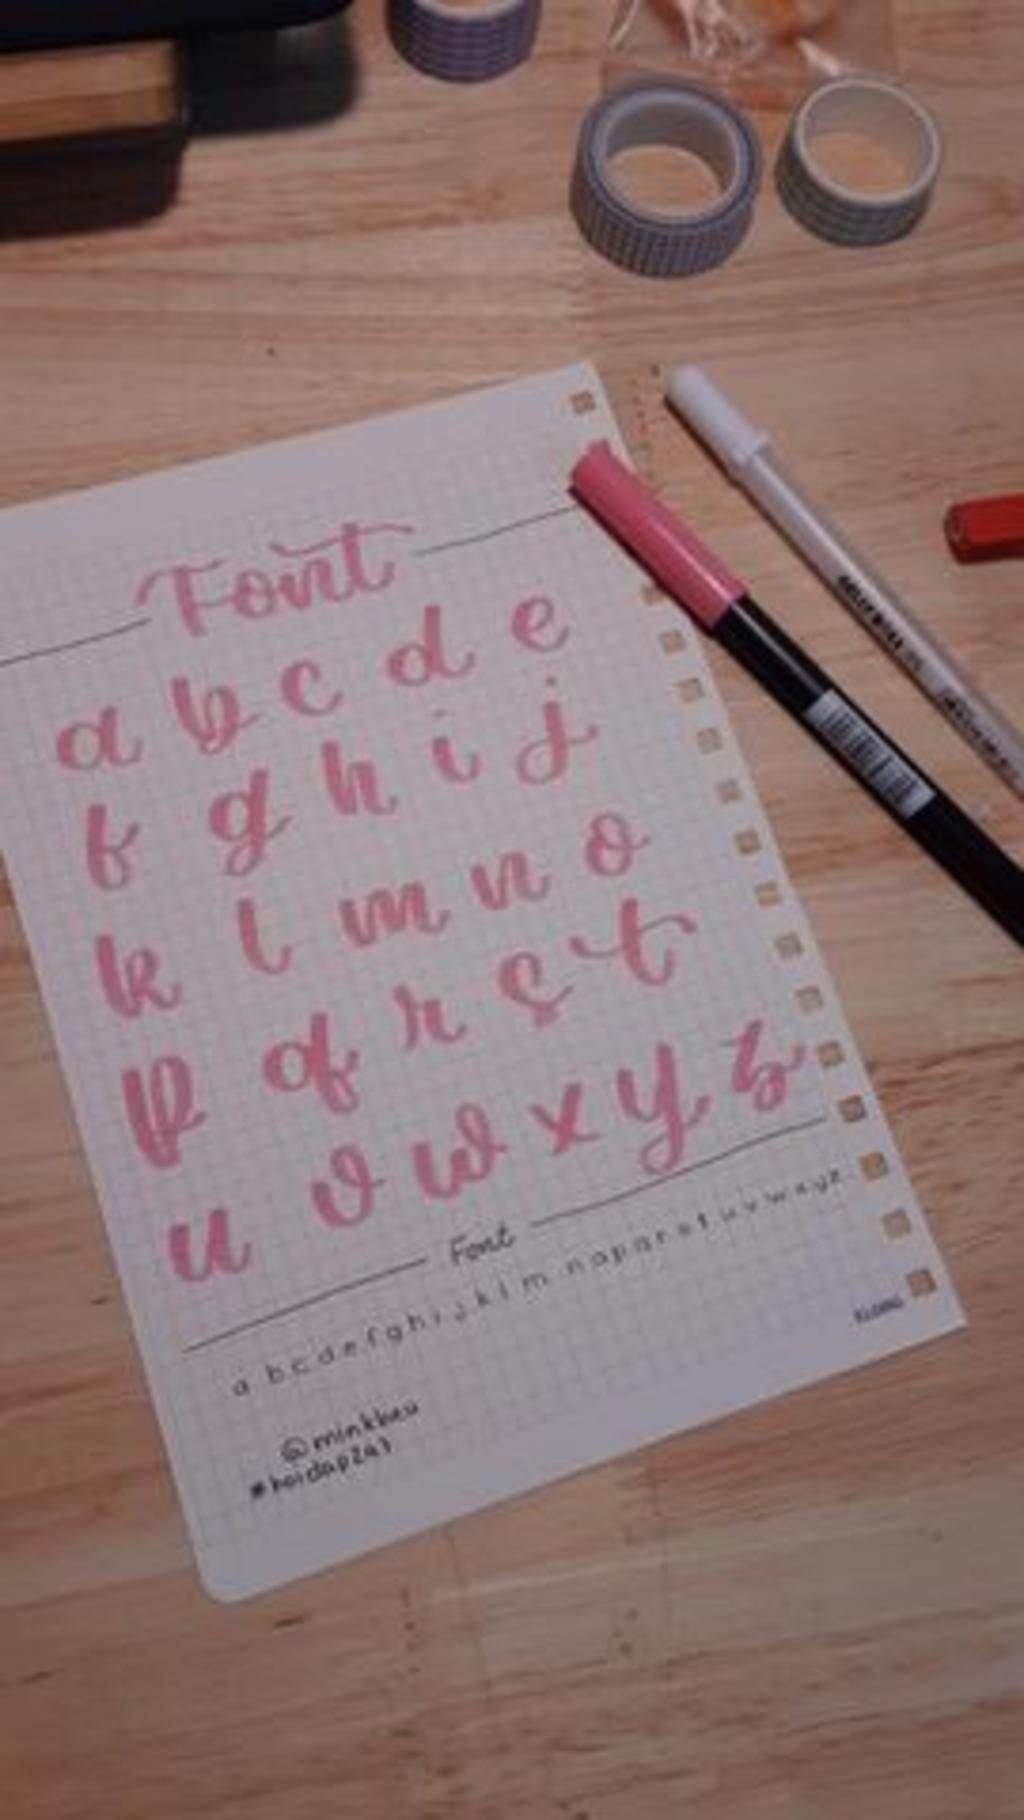 Font
a b c d e
f g h i j
k l m n o
p q r s t
u v w x y z
Font
a b c d e f g h i j k l m n o p q r s t u v w x y z
@minkbeu
#hoidap247
KLONG